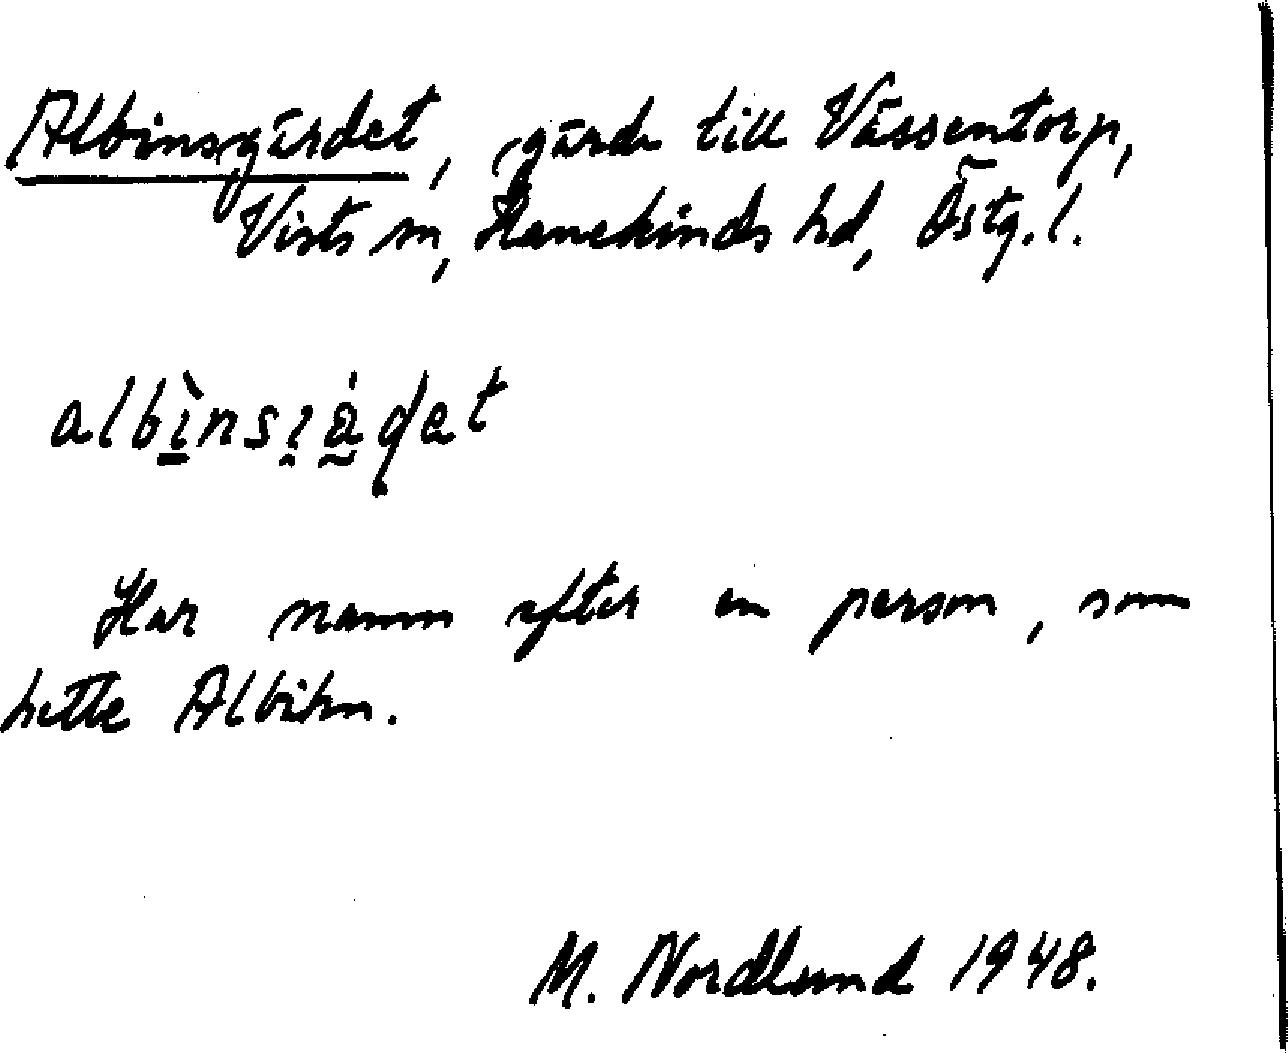 Albinsgärdet, gärde till Vässentorp,
Vists sn, Hanekinds hd, Östg. l.
Har namn efter en person, som
hette Albihn.
M. Nordlund 1948.